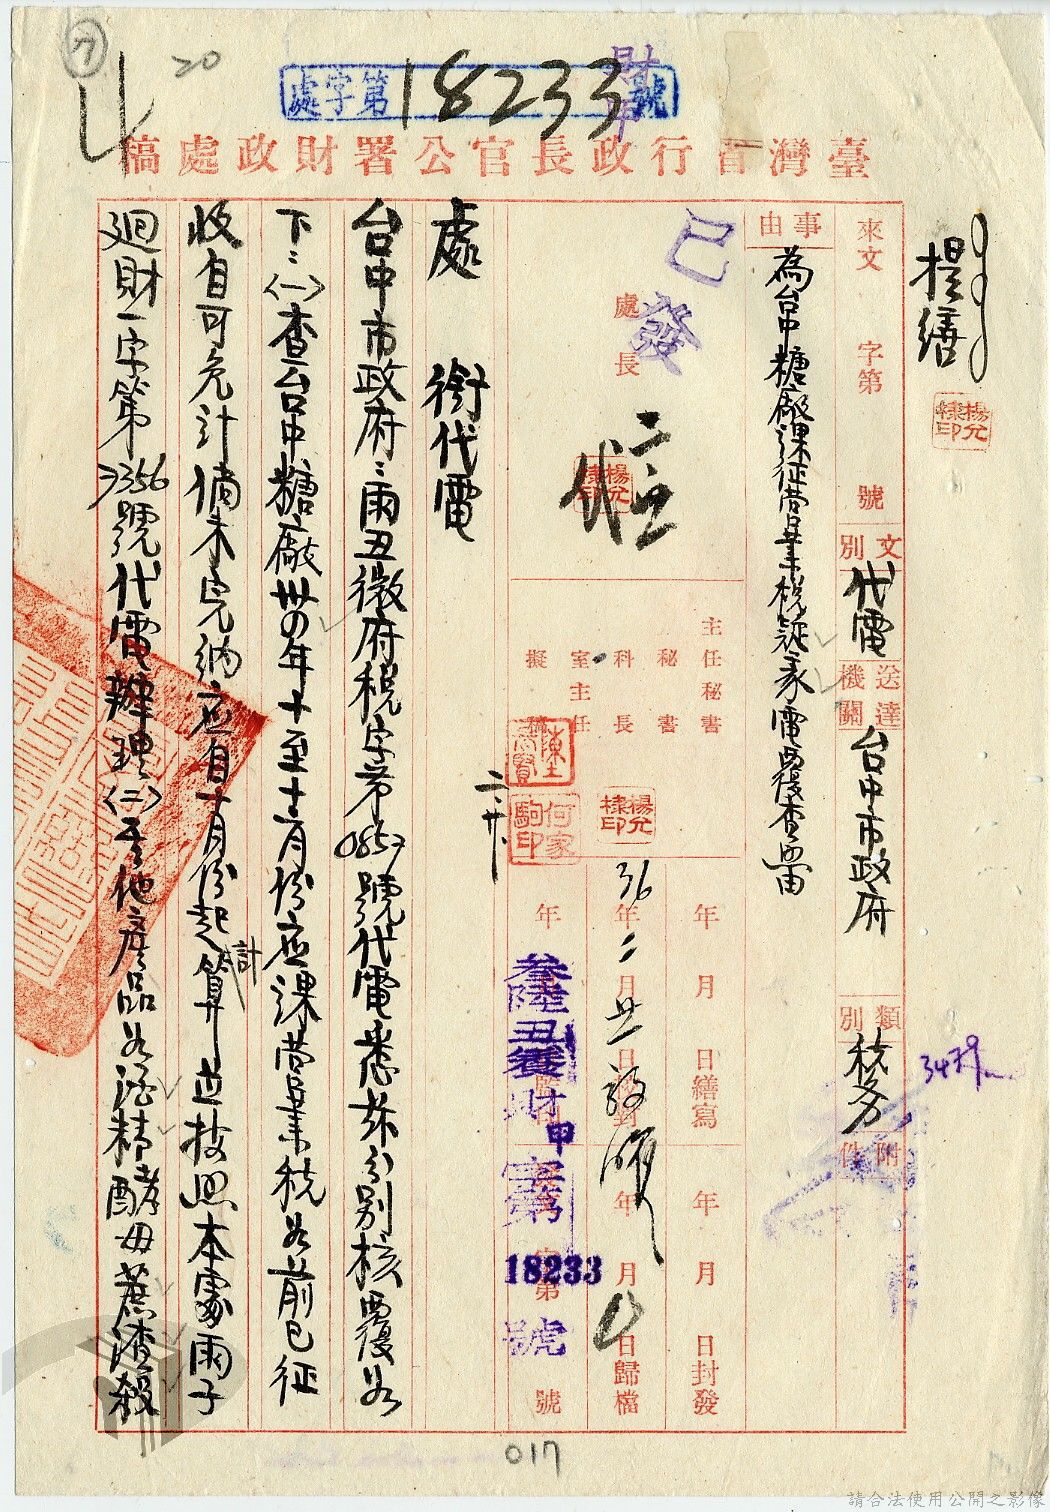 20
處字第18233號
財甲
臺灣省行政長官公署財政處稿
提繕
楊允棣印
來文 字第 號
文別 代電
送達機關 台中市政府
類別 稅務
附件
事由
為台中糖廠課征營業稅疑義電覆查照由
已發
處長
代
楊允棣印
主任秘書
秘書
科長
室主任
擬稿
楊允棣印
何家駒印
二、廿
年 月 日繕寫
36年二月 日校對
年 月 日封發
年 月 日歸檔
叁陸丑養財甲字第18233號
處 銜代電
台中市政府：兩丑微府稅字第0857號代電悉茲分別核覆如
下：(一)查台中糖廠卅四年十至十二月份應課營業稅如前已征
收自可免計倘未完納應自十月份起計算並按照本處兩子
迴財一字第7356號代電辦理(二)至他產品如酒精酵母蔗渣殺
017
請合法使用公開之影像